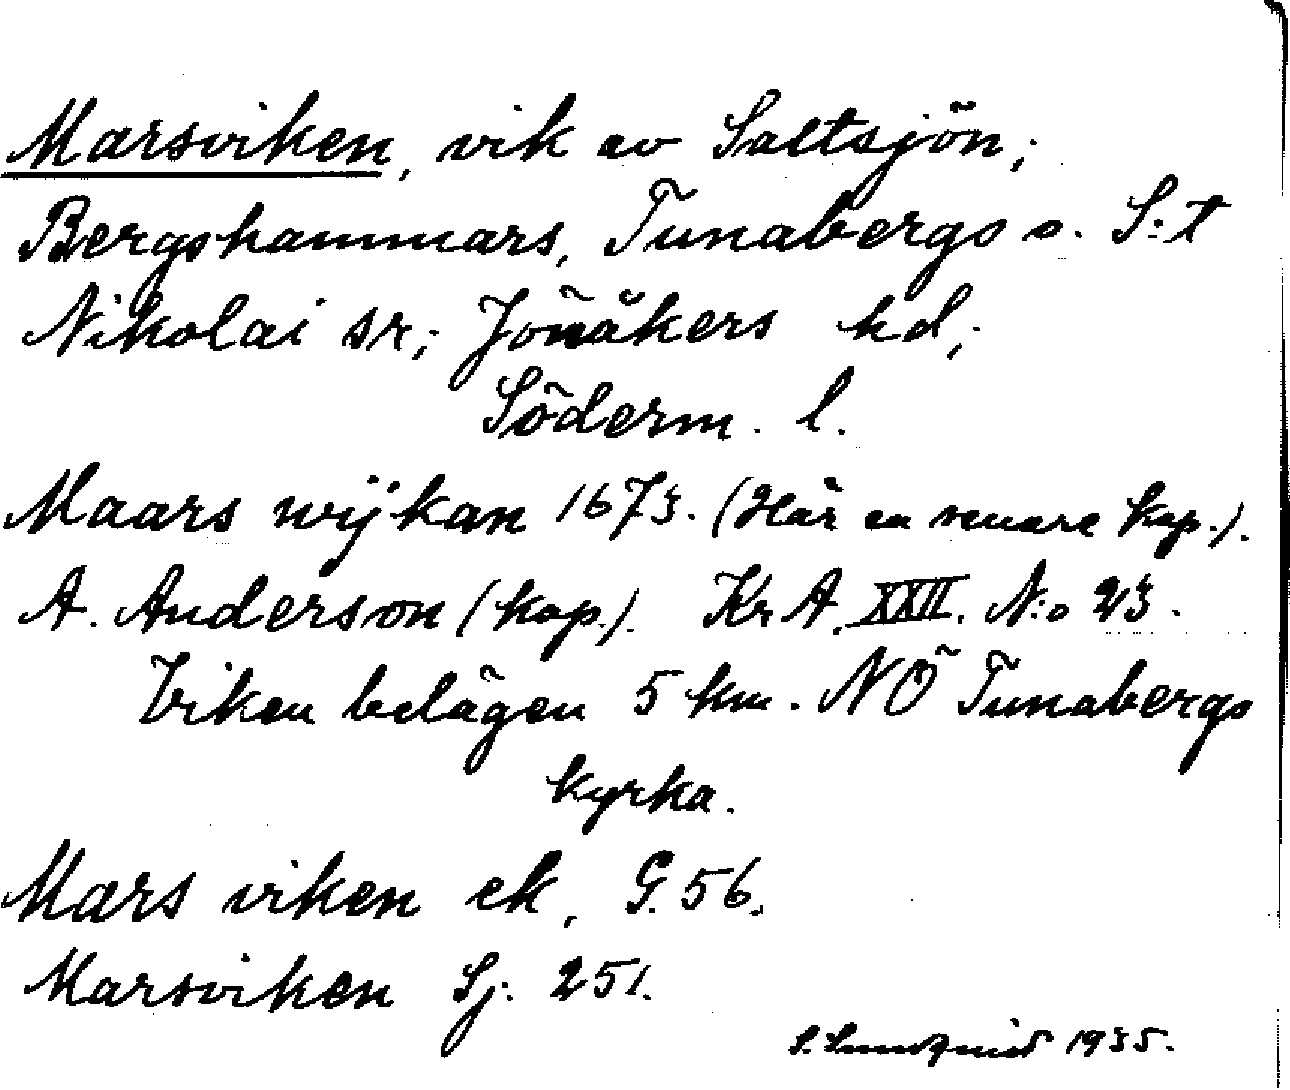 Marsviken, vik av Saltsjön;
Bergshammars, Tunabergs o. S:t
Nikolai sr; Jönåkers hd;
Söderm. l.
Maars wijkan 1673. (Här en senare kop.).
A. Anderson (kop.). Kr A. XXII. N:o 23.
Viken belägen 5 km. NÖ Tunabergs
kyrka.
Mars viken ek, G. 56.
Marsviken Sj. 251.
S. Lundquist 1935.